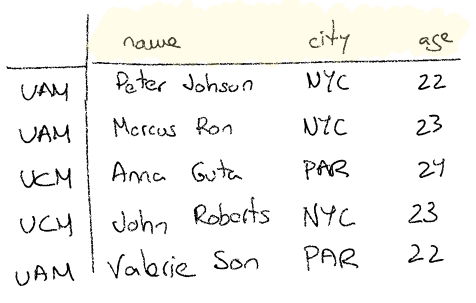 name city age
UAM Peter Johson NYC 22
UAM Marcus Ron NYC 23
UCM Anna Guta PAR 24
UCM John Roberts NYC 23
UAM Valerie Son PAR 22